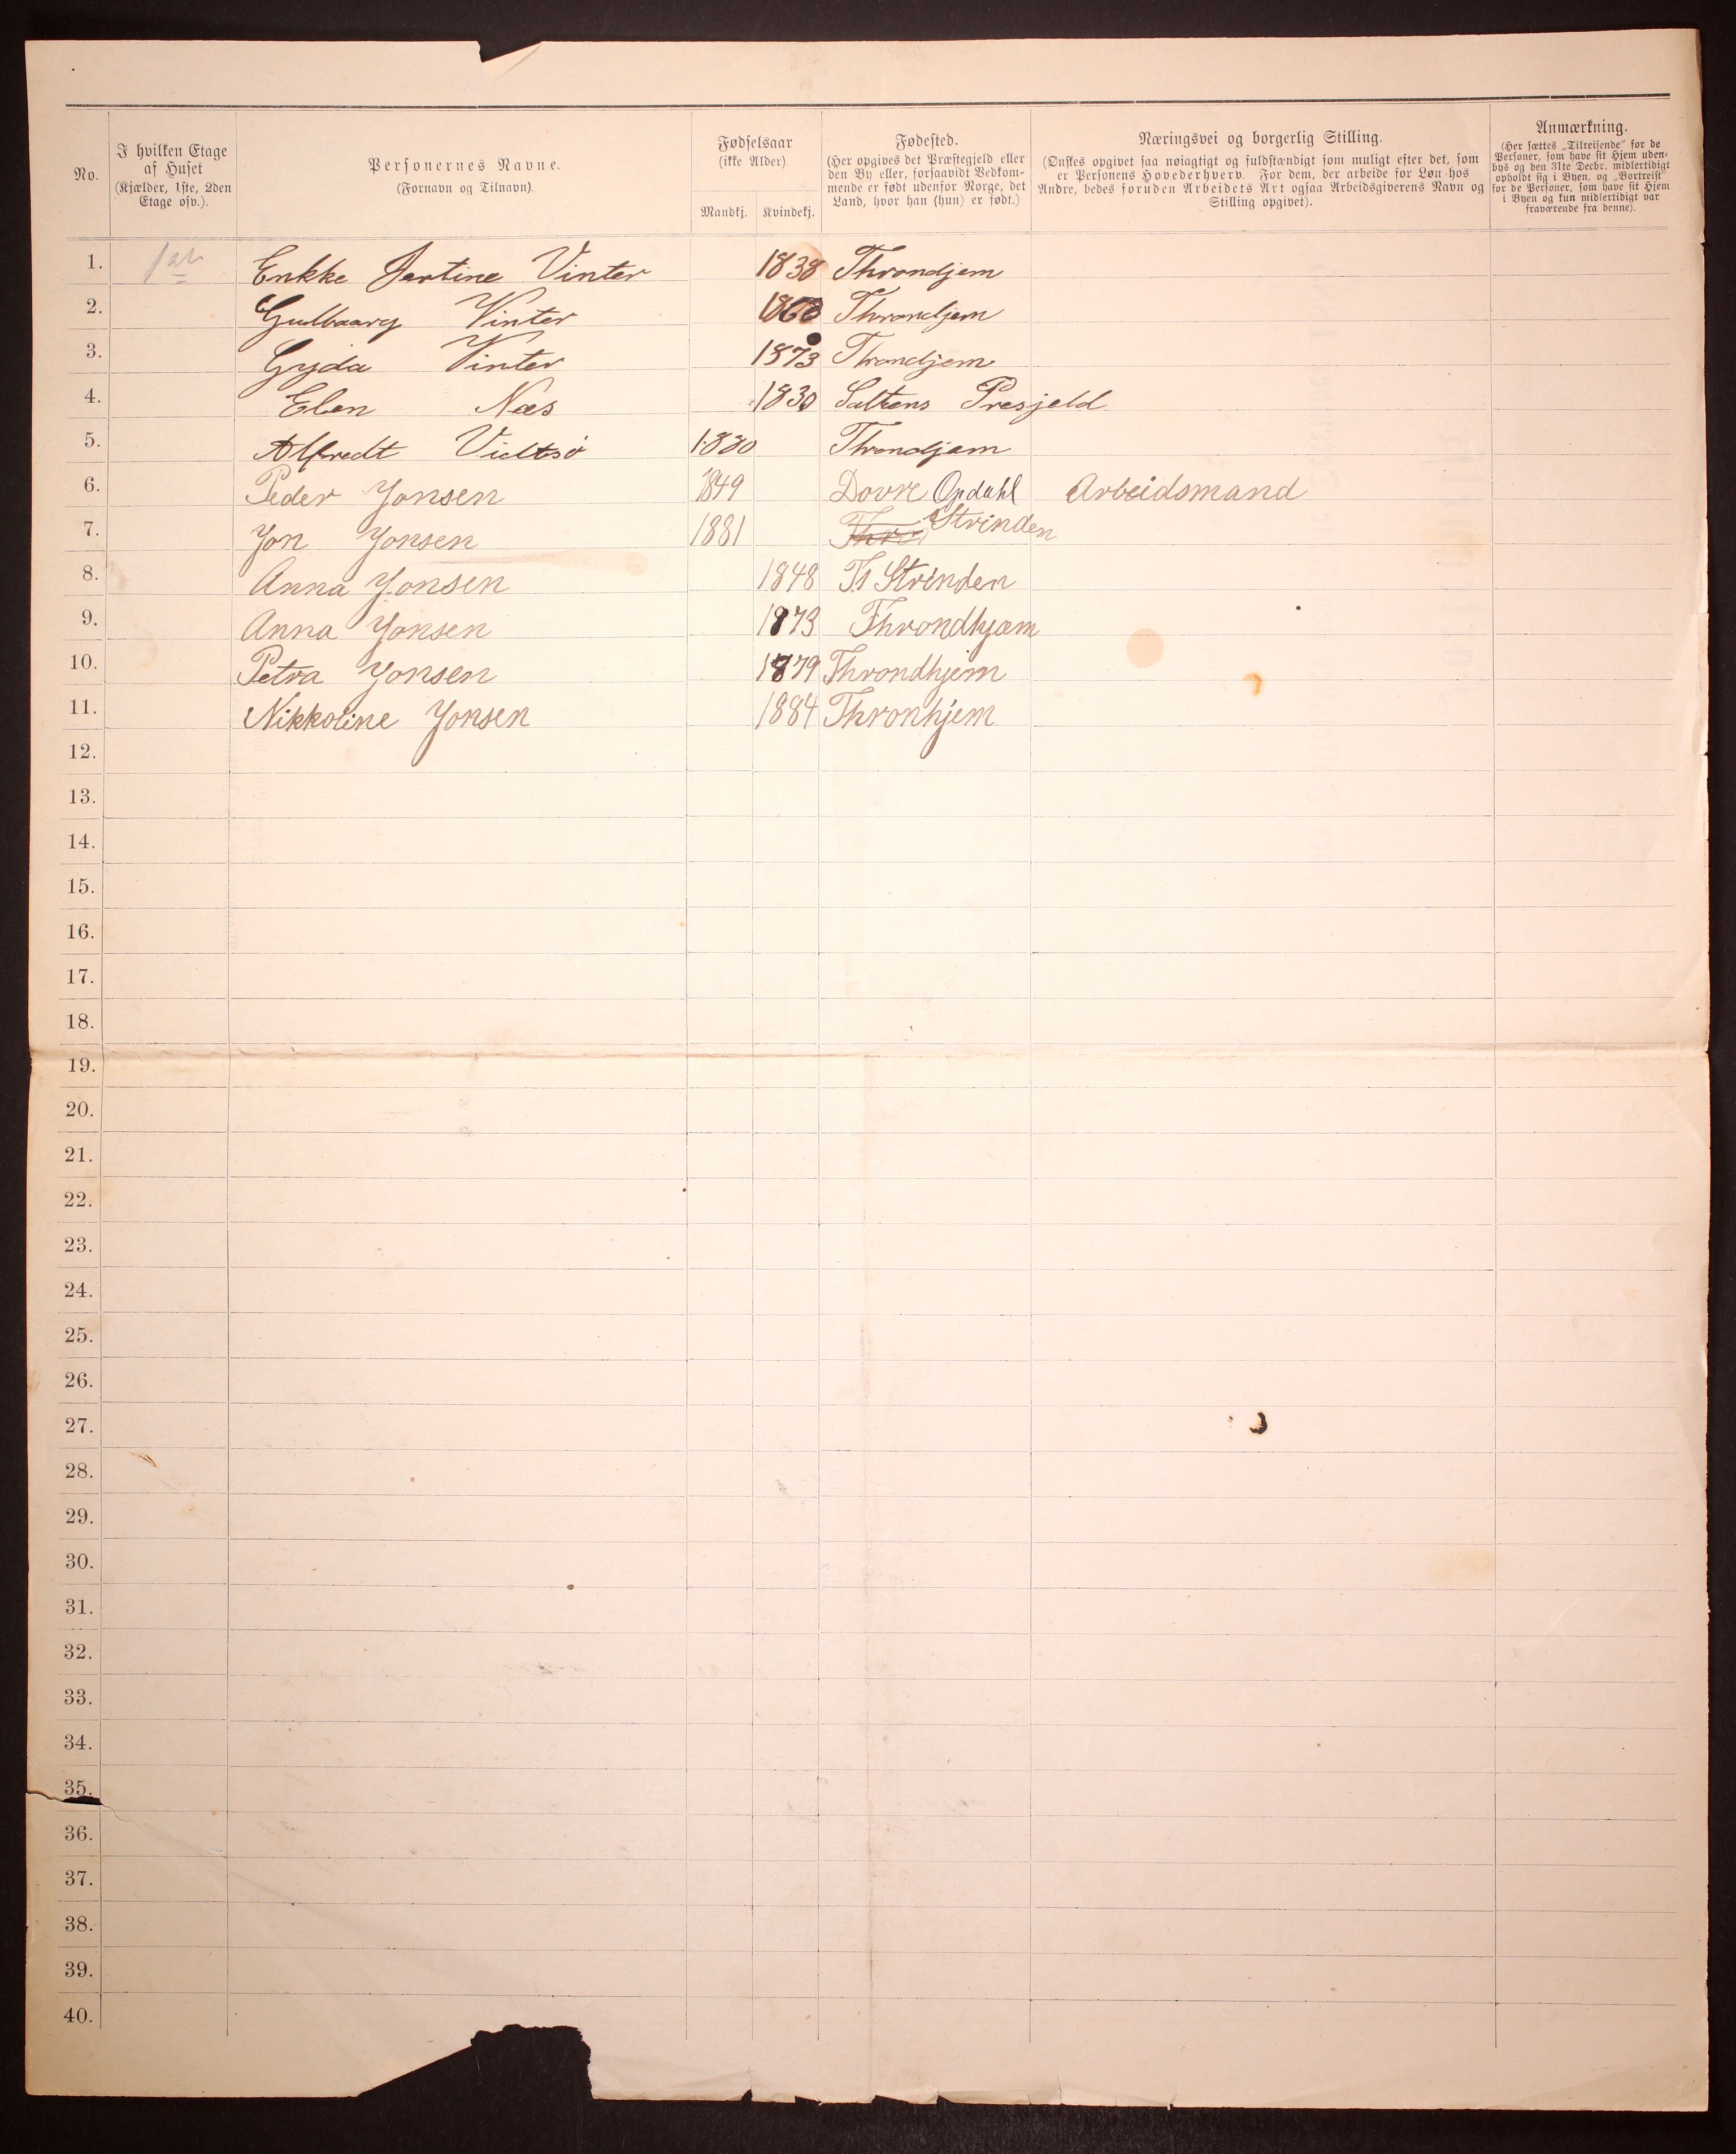 No.
I hvilken Etage
af Huset
(Kjælder, 1ste, 2den
Etage osv.).
Personernes Navne.
(Fornavn og Tilnavn).
Fødselsaar
(ikke Alder).
Mandkj.
Kvindekj.
Fødested.
(Her opgives det Præstegjeld eller
den By eller, forsaavidt Vedkom-
mende er født udenfor Norge, det
Land, hvor han (hun) er født.)
Næringsvei og borgerlig Stilling.
(Ønskes opgivet saa nøiagtigt og fuldstændigt som muligt efter det, som
er Personens Hovederhverv. For dem, der arbeide for Løn hos
Andre, bedes foruden Arbeidets Art ogsaa Arbeidsgiverens Navn og
Stilling opgivet).
Anmærkning.
(Her sættes „Tilreisende" for de
Personer, som have sit Hjem uden-
bys og den 31te Decbr. midlertidigt
opholdt sig i Byen, og „Bortreist"
for de Personer, som have sit Hjem
i Byen og kun midlertidigt var
fraværende fra denne).
1. Enkke Vinter 1838 Throndjem
2. Gulbaarg Vinter Throndjem
3. Gyda Vinter 1873 Throndjem
4. Elen Næs 1830 Saltens Presjeld
5. Alfredt 1880 Throndjem
6. Peder Yonsen 1849 Dovre Opdahl Arbeidsmand
7. Jon Yonsen 1881 Thro Strinden
8. Anna Yonsen 1848 Strinden
9. Anna Yonsen 1873 Throndhjæm
10. Petra Yonsen 1879 Throndhjem
11. Nikkoline Yonsen 1884 Thronhjem
12.
13.
14.
15.
16.
17.
18.
19.
20.
21.
22.
23.
24.
25.
26.
27.
28.
29.
30.
31.
32.
33.
34.
35.
36.
37.
38.
39.
40.